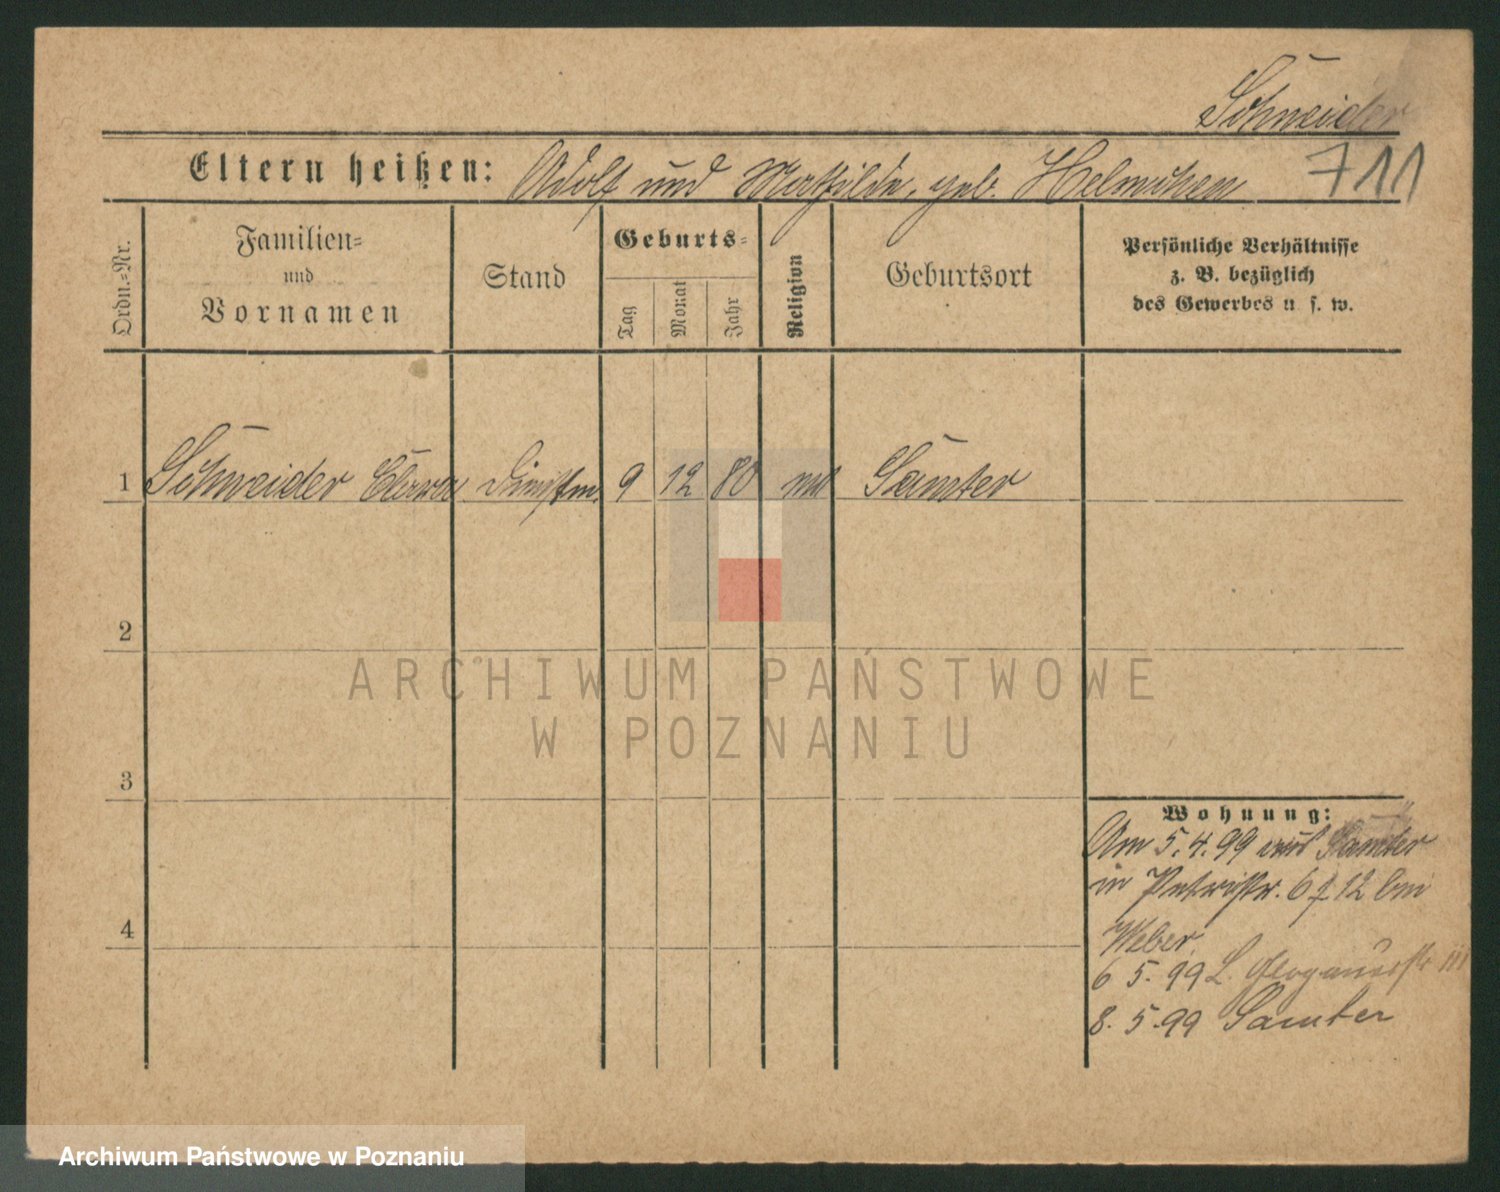 Schneider
Eltern heißen: Adolf und Mathilde, geb. Helmchen
711
Ordn.-Nr.
Familien-
und
Vornamen
Stand
Geburts-
Tag
Monat
Jahr
Religion
Geburtsort
Persönliche Verhältnisse
z. B. bezüglich
des Gewerbes u. s. w.
1 Schneider Clara Dienstm. 9 12 80 Samter
2
3
4
ARCHIWUM PAŃSTWOWE
W POZNANIU
Wohnung:
Am 5.4.99 aus Samter
in Petristr. 6 12 bei
Weber,
6 5. 99 L. Glogauerstr 111
8. 5.99 Samter
Archiwum Państwowe w Poznaniu